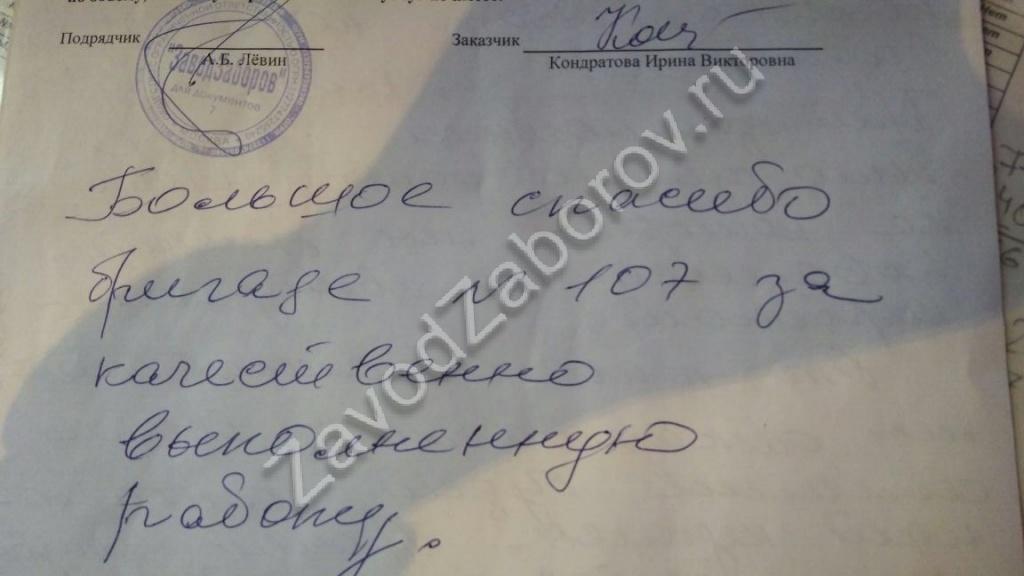 Подрядчик
А.Б. Лёвин
"ЗаводЗаборов"
для документов
Заказчик
Кондратова Ирина Викторовна
Большое спасибо
бригаде № 107 за
качественно
выполненную
работу.
ZavodZaborov.ru